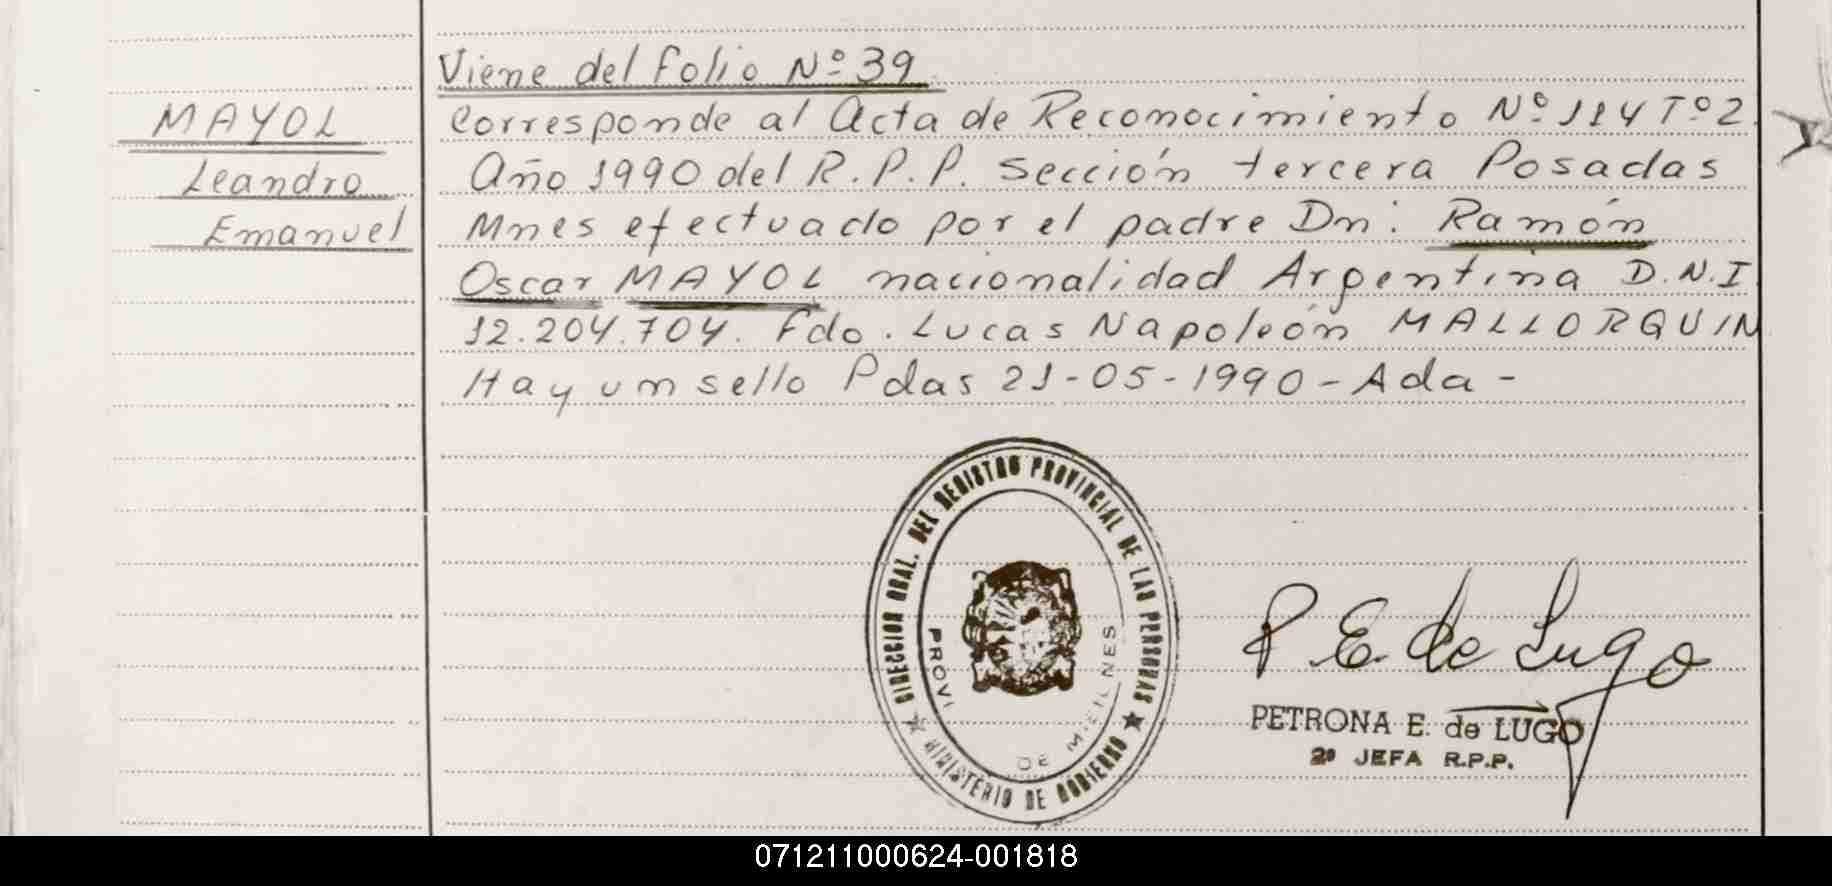 Viene del folio Nº 39
MAYOL
Leandro
Emanuel
Corresponde al Acta de Reconocimiento Nº 114 Tº 2
Año 1990 del R.P.P. sección tercera Posadas
Mnes efectuado por el padre Dn: Ramón
Oscar MAYOL nacionalidad Argentina D.N.I
12.204.704. Fdo. Lucas Napoleón MALLORQUIN
Hay un sello Pdas 21-05-1990 - Ada -
DIRECCION GRAL. DEL REGISTRO PROVINCIAL DE LAS PERSONAS
MINISTERIO DE GOBIERNO
PROVI
DE
P E. de Lugo
PETRONA E. de LUGO
2º JEFA R.P.P.
071211000624-001818